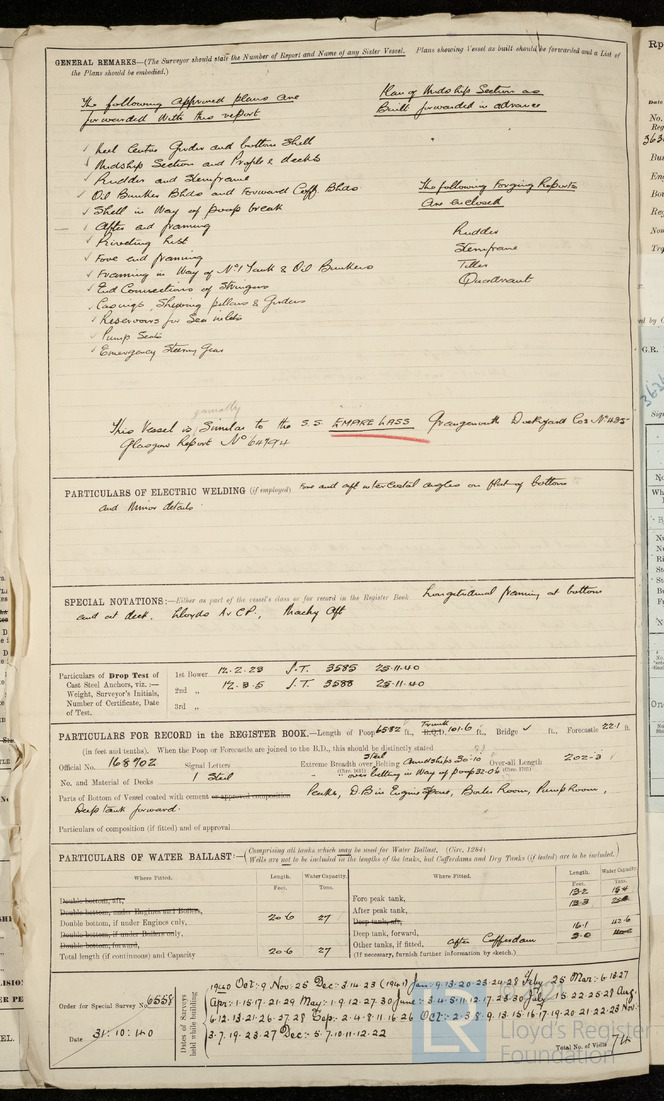 GENERAL REMARKS—(The Surveyor should state the Number of Report and Name of any Sister Vessel. Plans showing Vessel as built should be forwarded and a List of
the Plans should be embodied.)
The following approved plans are
forwarded with this report
Plan of Midship Section as
Built forwarded in advance
✓ Keel Centre Girder and bottom Shell
✓ Midship Section and Profile & decks
✓ Rudder and Sternframe
✓ Oil Bunker Bhds and Forward Coff Bhds
✓ Shell in Way of poop break
✓ After end framing
✓ Riveting List
✓ Fore end framing
✓ Framing in Way of No 1 Tank & Oil Bunkers
✓ End Connections of Stringers
Casings, Shewing pillars & Girders
✓ Reservoirs for Sea inlets
✓ Pump Seats
✓ Emergency Steering Gear
The following Forging Reports
Are enclosed
Rudder
Sternframe
Tiller
Quadrant
generally
This Vessel is Similar to the S.S. EMPIRE LASS Grangemouth Dockyard Cos No 435
Glasgow Report No 64794
PARTICULARS OF ELECTRIC WELDING (if employed) Fore and aft intercostal angles on flat of bottom
and Minor details
SPECIAL NOTATIONS:—Either as part of the vessel's class or for record in the Register Book Longitudinal framing at bottom
and at deck. Lloyds A & CP., Machy Aft
Particulars of Drop Test of
Cast Steel Anchors, viz.:—
Weight, Surveyor's Initials,
Number of Certificate, Date
of Test.
1st Bower 12.2.23 J.T. 3585 25.11.40
2nd „ 12.3.5 J.T. 3588 25.11.40
3rd „
PARTICULARS FOR RECORD IN THE REGISTER BOOK.—Length of Poop 65.82 ft., Trunk R.Q.D. 101.6 ft., Bridge ✓ ft., Forecastle 22.1 ft.
(in feet and tenths). When the Poop or Forecastle are joined to the B.D., this should be distinctly stated
Official No. 168702 Signal Letters Extreme Breadth over Belting Amidships 30.10 Over-all Length 202.3
No. and Material of Decks 1 Steel „ over belting in Way of poop 32.06
Parts of Bottom of Vessel coated with cement or approved composition Peaks, D B in Engine Space, Boiler Room, Pump Room,
Deep tank forward.
Particulars of composition (if fitted) and of approval
PARTICULARS OF WATER BALLAST:—(Comprising all tanks which may be used for Water Ballast. (Circ. 1284)
Wells are not to be included in the lengths of the tanks, but Cofferdams and Dry Tanks (if tested) are to be included.)
Where Fitted. Length. Water Capacity. Where Fitted. Length. Water Capacity.
Feet. Tons. Feet. Tons.
Double bottom, aft,
Double bottom, under Engines and Boilers,
Double bottom, if under Engines only, 20.6 27
Double bottom, if under Boilers only,
Double bottom, forward,
Total length (if continuous) and Capacity 20.6 27
Fore peak tank,
After peak tank,
Deep tank, aft,
Deep tank, forward, 16.1
Other tanks, if fitted, After Cofferdam
(If necessary, furnish further information by sketch.)
Order for Special Survey No. 6558
Date 31.10.40
Dates of Surveys held while building
1940 Oct: 9 Nov: 25 Dec: 3.14.23 (1941) Jan: 9.13.20.23.24.28 Feby 25 Mar: 6.13.27
Apr: 1.15.17.21.29 May: 1.9.12.27.30 June: 3.4.5.11.12.17.23.30 July 15.22.25.28 Aug
6.12.13.21.26.27.28 Sep: 2.4.8.11.16.26 Oct: 2.3.8.9.13.15.16.17.19.20.21.22.23 Nov:
3.7.19.23.27 Dec: 5.7.10.11.12.22
Total No. of Visits 74
LR
Lloyd's Register
Foundation